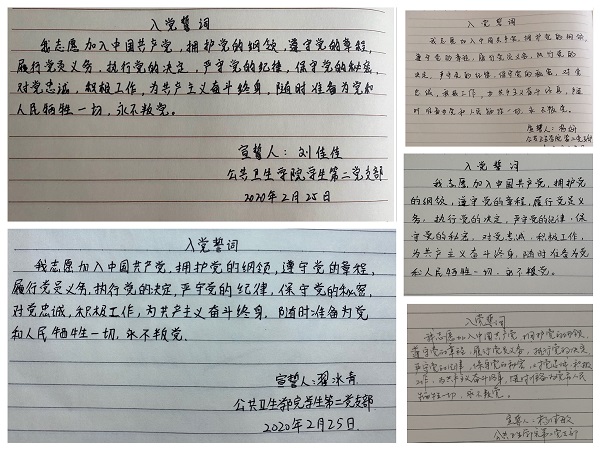 入党誓词
我志愿加入中国共产党，拥护党的纲领，遵守党的章程，
履行党员义务，执行党的决定，严守党的纪律，保守党的秘密，
对党忠诚，积极工作，为共产主义奋斗终身，随时准备为党和
人民牺牲一切，永不叛党。
宣誓人：刘佳佳
公共卫生学院学生第二党支部
2020年2月25日
入党誓词
我志愿加入中国共产党，拥护党的纲领，遵守党的章程，
履行党员义务，执行党的决定，严守党的纪律，保守党的秘密，
对党忠诚，积极工作，为共产主义奋斗终身，随时准备为党
和人民牺牲一切，永不叛党。
宣誓人：翟冰青
公共卫生学院学生第二党支部
2020年2月25日
入党誓词
我志愿加入中国共产党，拥护党的纲领，
遵守党的章程，履行党员义务，执行党的
决定，严守党的纪律，保守党的秘密，对党
忠诚，积极工作，为共产主义奋斗终身，随
时准备为党和人民牺牲一切，永不叛党。
宣誓人：
公共卫生学院第二党支部
入党誓词
我志愿加入中国共产党，拥护党
的纲领，遵守党的章程，履行党员义
务，执行党的决定，严守党的纪律，保
守党的秘密，对党忠诚，积极工作，
为共产主义奋斗终身，随时准备为党
和人民牺牲一切，永不叛党。
入党誓词
我志愿加入中国共产党，拥护党的纲领，
遵守党的章程，履行党员义务，执行党的决定，
严守党的纪律，保守党的秘密，对党忠诚，积极
工作，为共产主义奋斗终身，随时准备为党和人民
牺牲一切，永不叛党。
宣誓人：